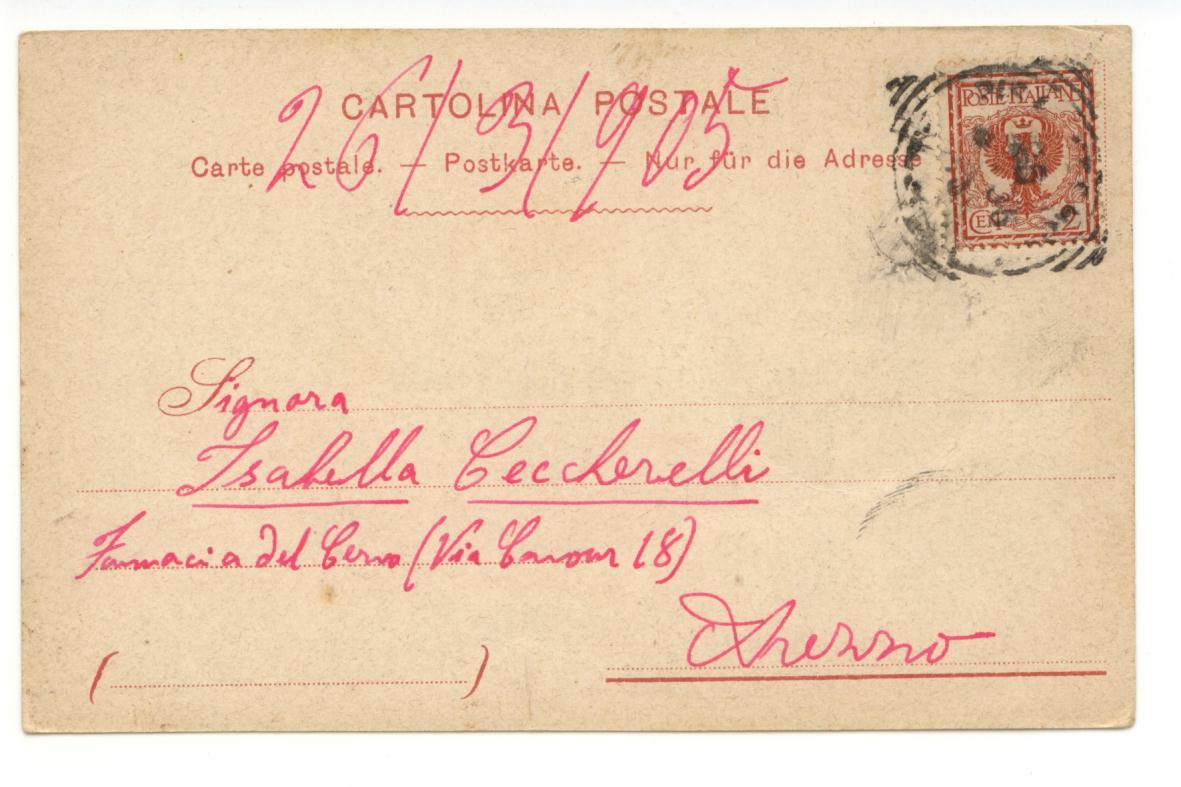 CARTOLINA POSTALE
26/3/905
Carte postale. — Postkarte. — Nur für die Adresse
POSTE ITALIANE
CENT. 2
Signora
Isabella Ceccherelli
Farmacia del Cervo (Via Cavour 18)
Arezzo